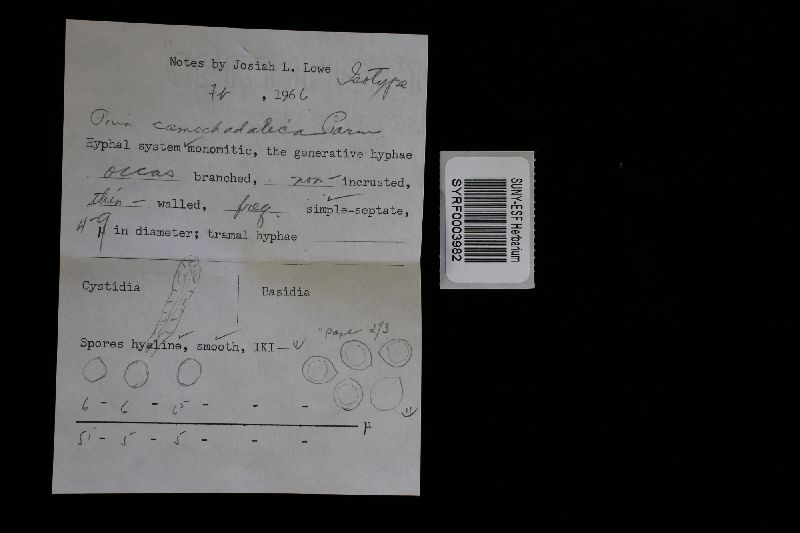 Notes by Josiah L. Lowe Isotype
, 1966
Poria camschadalica Parm
Hyphal system monomitic, the generative hyphae
occas branched, non- incrusted,
thin- walled, freq. simple-septate,
4-9 μ in diameter; tramal hyphae
Cystidia Basidia
"page 213
Spores hyaline, smooth, IKI-
6 - 6 - 6.5 - - -
μ
5 - 5 - 5 - - -
SUNY-ESF Herbarium
SYRF0003982